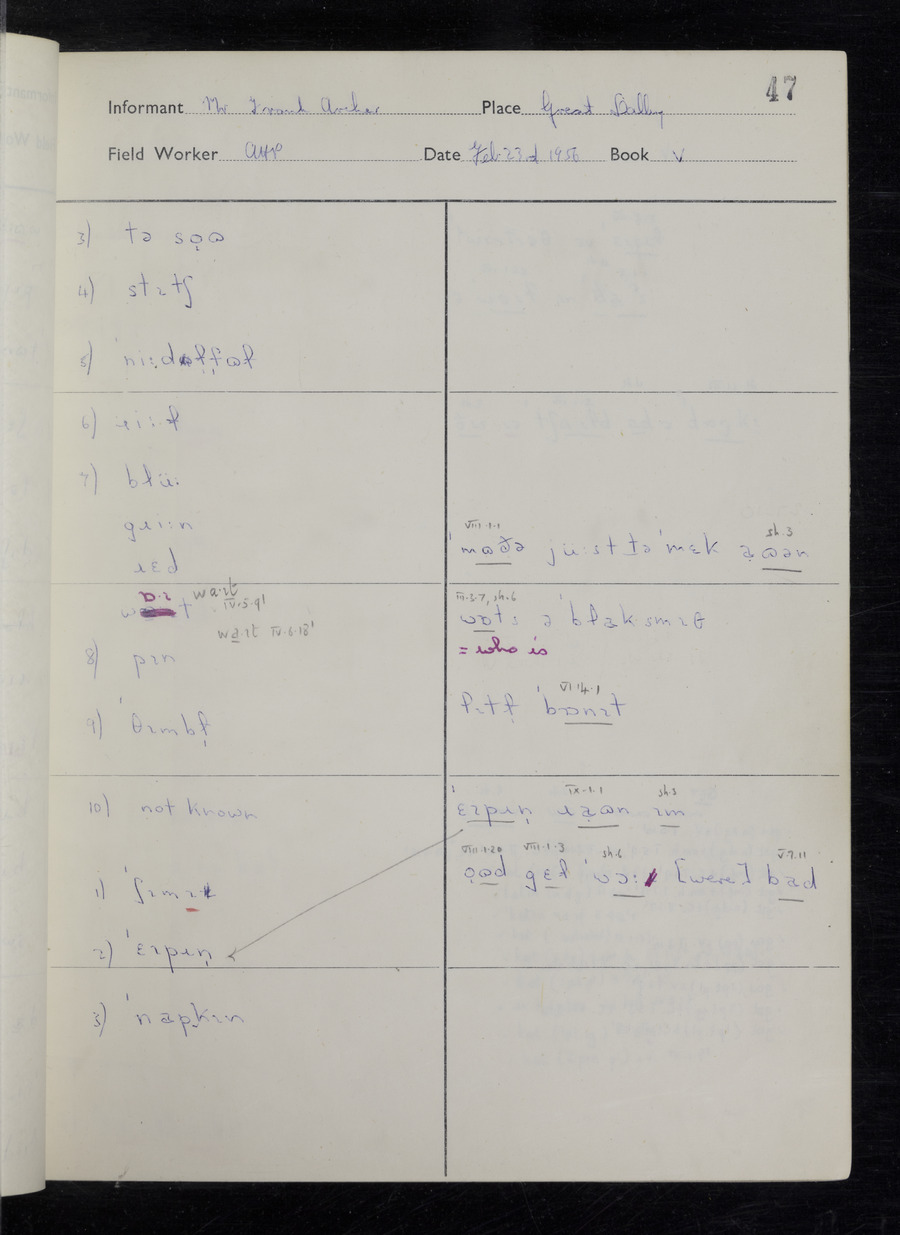 47
Informant Mr Frank Archer Place Great
Field Worker AHP Date Feb. 23d 1956 Book V
3) tə sɔ̜ɷ
4) stɪtʃ
5) ˈni:dəɫfəɫ
6) ɹi:ɫ
7) blü:
gɹi:n
ɹɛd
w t waɪt IV·5·9'
waɪt IV·6·18'
8) pɪn
9) ˈθɪmbɫ̩
10) not known
1) ˈʃɪmɪ
2) ˈɛɪpɹn̩
3) ˈnapkɪn
VIII·1·1 sh.3
ˈmɷðə jü:st tə ˈmɛk a̜ɷən
III·3·7, sh.6
wɒts ə ˈblaksmɪθ
= who is
VI·14·1
lɪtɫ̩ ˈbɒnɪt
IX·1·1 sh.5
ˈɛɪpɹn̩ ɹa̜ɷn ɪm
VIII·1·20 VIII·1·3 sh.6 V·7·11
ɔ̜ɷd gɛɫ wə: [were] bad